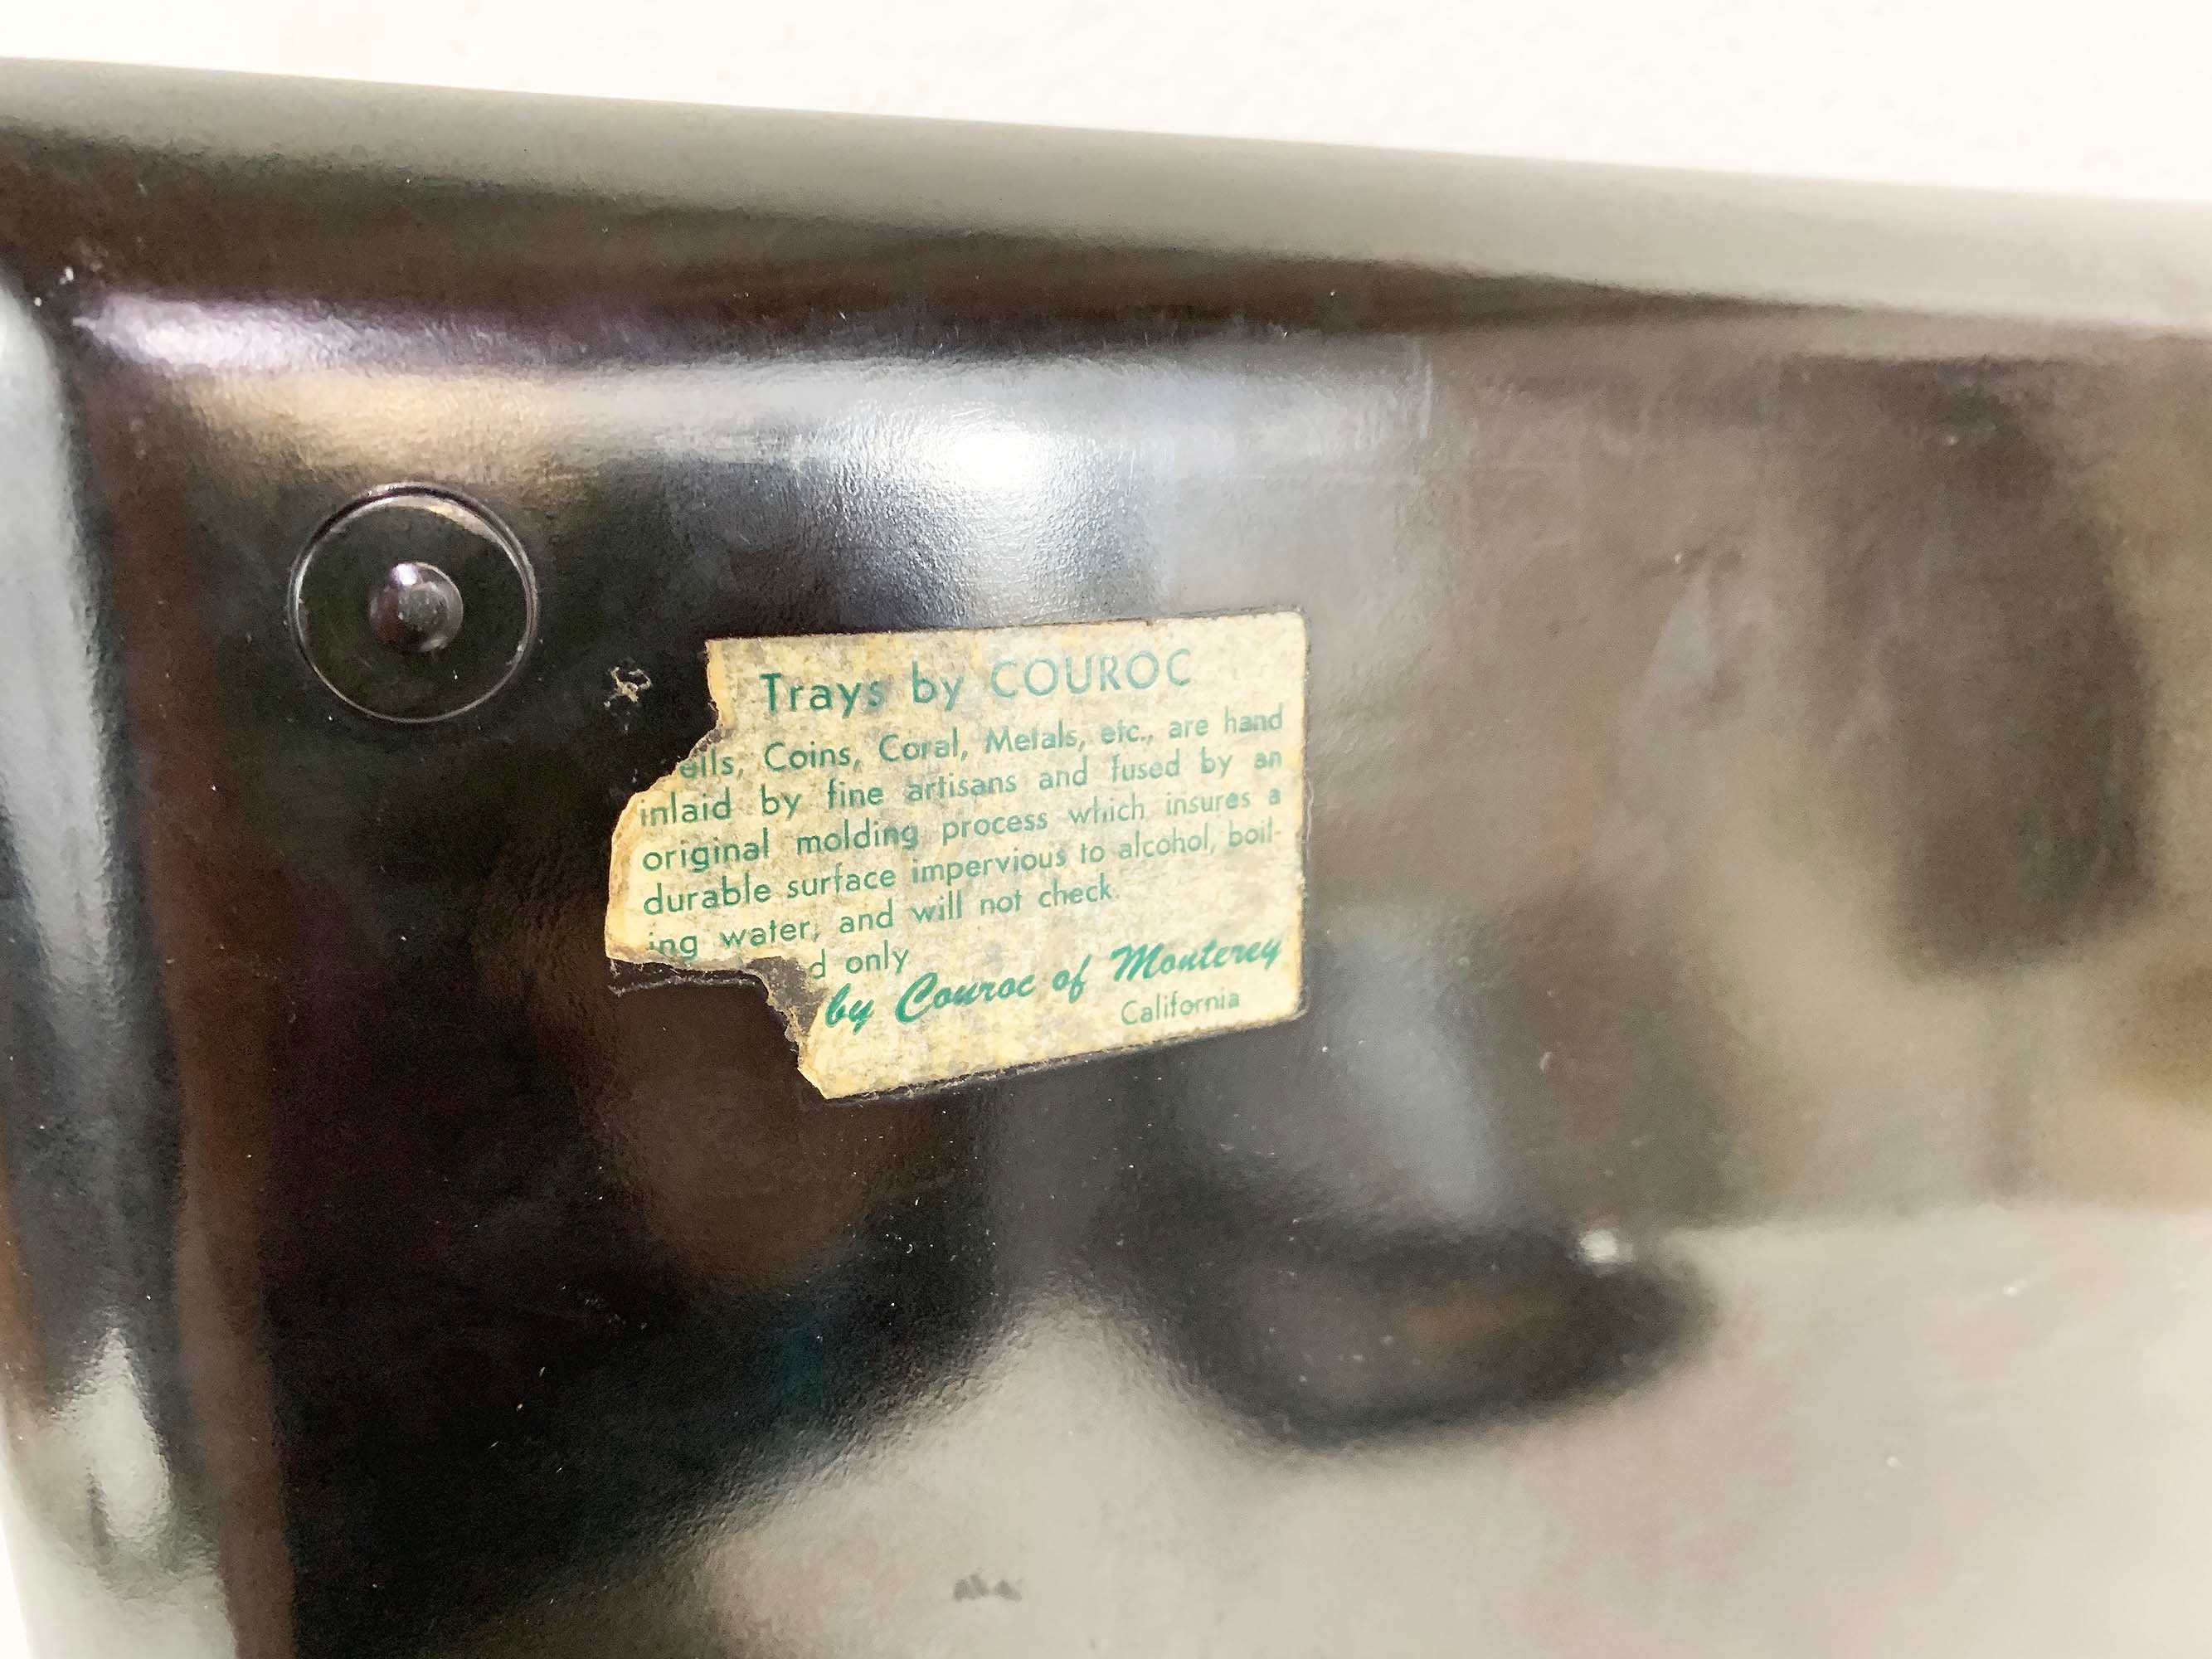 Trays by COUROC
ells, Coins, Coral, Metals, etc., are hand
inlaid by fine artisans and fused by an
original molding process which insures a
durable surface impervious to alcohol, boil-
ing water, and will not check.
d only
by Couroc of Monterey
California